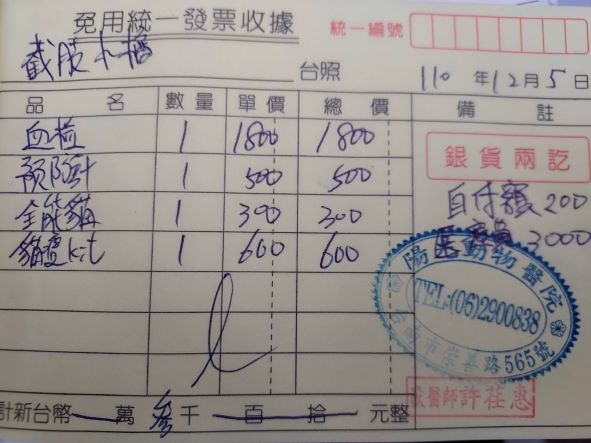 免用統一發票收據
統一編號
截肢小橘 台照 110年12月5日
品名 數量 單價 總價 備註
血檢 1 1800 1800
預防針 1 500 500
全能貓 1 300 300
貓瘟kit 1 600 600
銀貨兩訖
自付額200
3000
陽 動物醫院
TEL:(06)2900838
台南市崇善路565號
獸醫師許荏惠
計新台幣 萬 參千 百 拾 元整